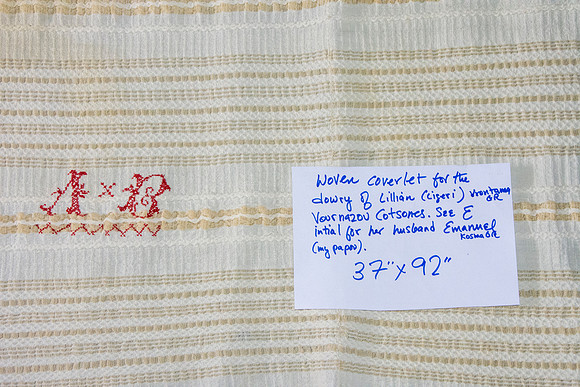 A x B
Woven coverlet for the
dowry of Lillian (Ligeri) Vrontamas GR
Vournazou Cotsones. See E
intial for her husband Emanuel
Kosmas GR
(my papou).
37" x 92"